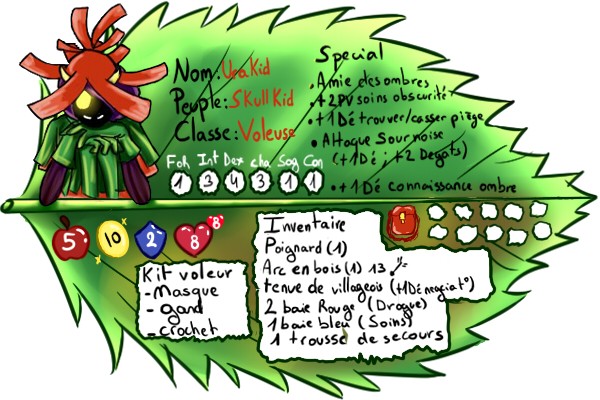 Nom: UraKid
Peuple: SKull Kid
Classe: Voleuse
For Int Dex cha Sag Con
1 3 4 3 1 1
Special
• Amie des ombres
• +2PV soins obscurité
• +1Dé trouver/casser piège
• Attaque Sournoise
(+1Dé ; +2 Degats)
• +1 Dé connaissance ombre
5 10 2 8 8
Kit voleur
- Masque
- Gand
- crochet
Inventaire
Poignard (1)
Arc en bois (1) 13
tenue de villageois (+1Dé negociat°)
2 baie Rouge (Drogue)
1 baie bleu (Soins)
1 trousse de secours